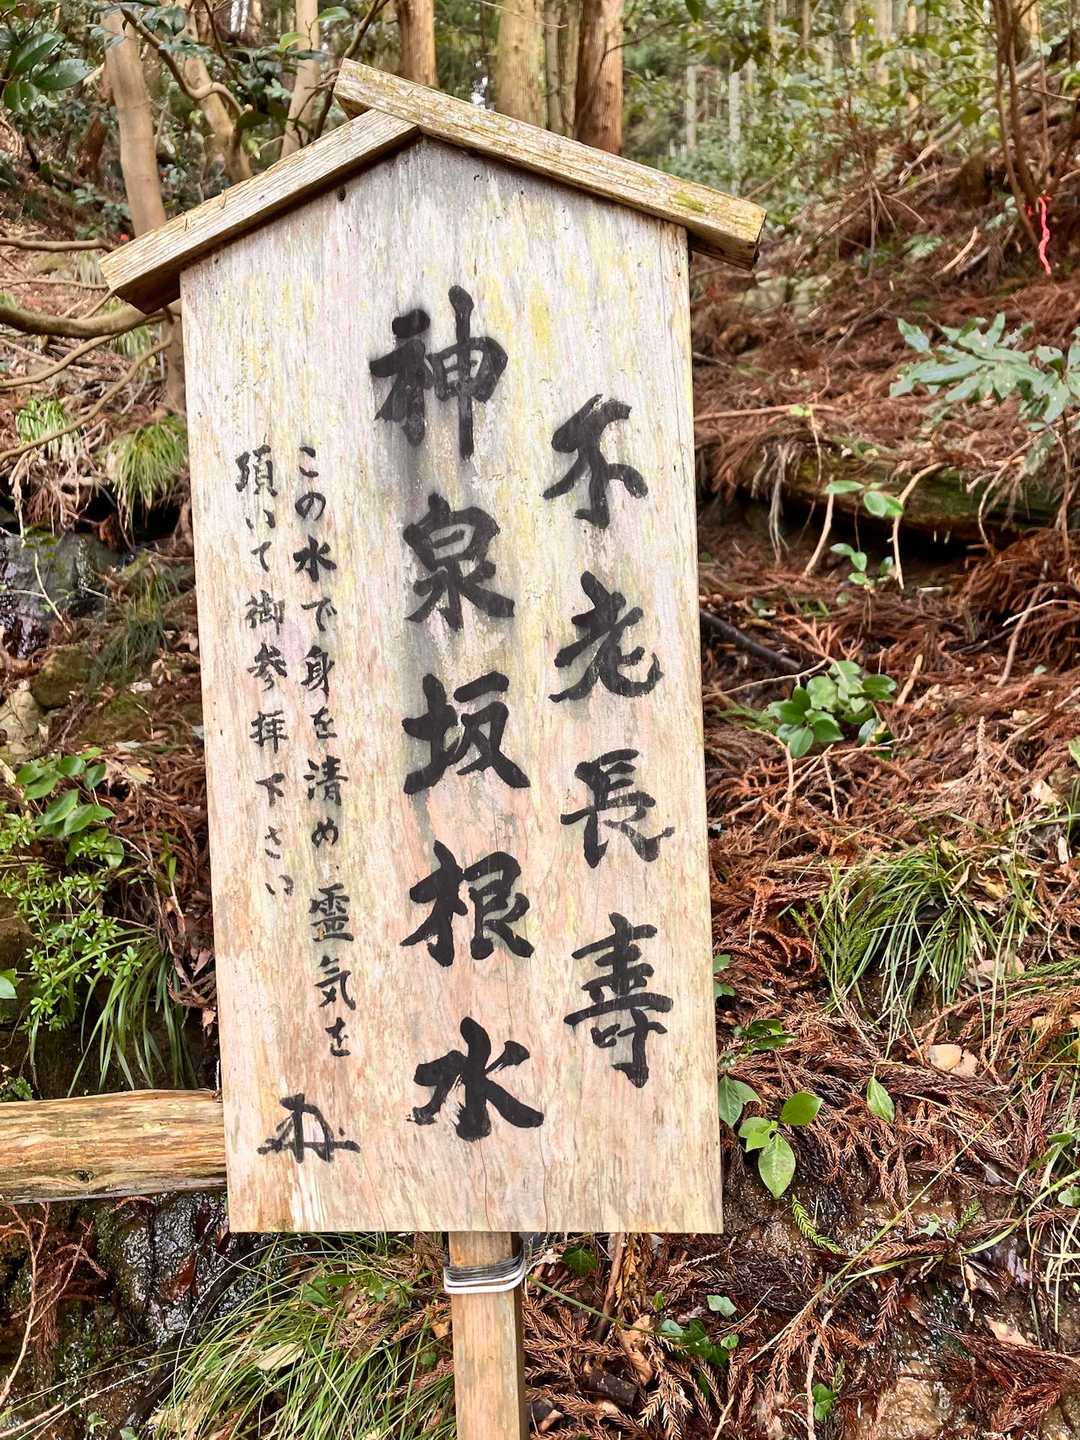 不老長寿
神泉坂根水
この水で身を清め、霊気を
頂いて御参拝下さい